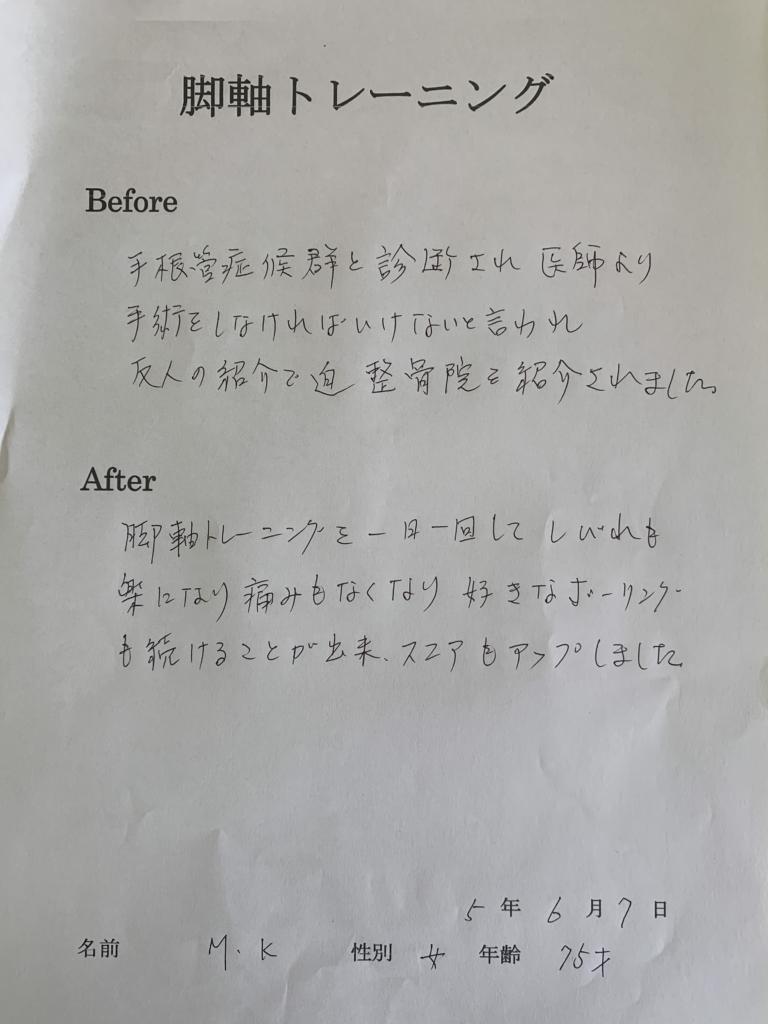 脚軸トレーニング
Before
手根管症候群と診断され 医師より
手術をしなければいけないと言われ
友人の紹介で迫 整骨院を紹介されました。
After
脚軸トレーニングを一日一回して しびれも
楽になり 痛みもなくなり 好きなボーリング
も続けることが出来、スコアもアップしました。
5 年 6 月 7 日
名前 M.K 性別 女 年齢 75才